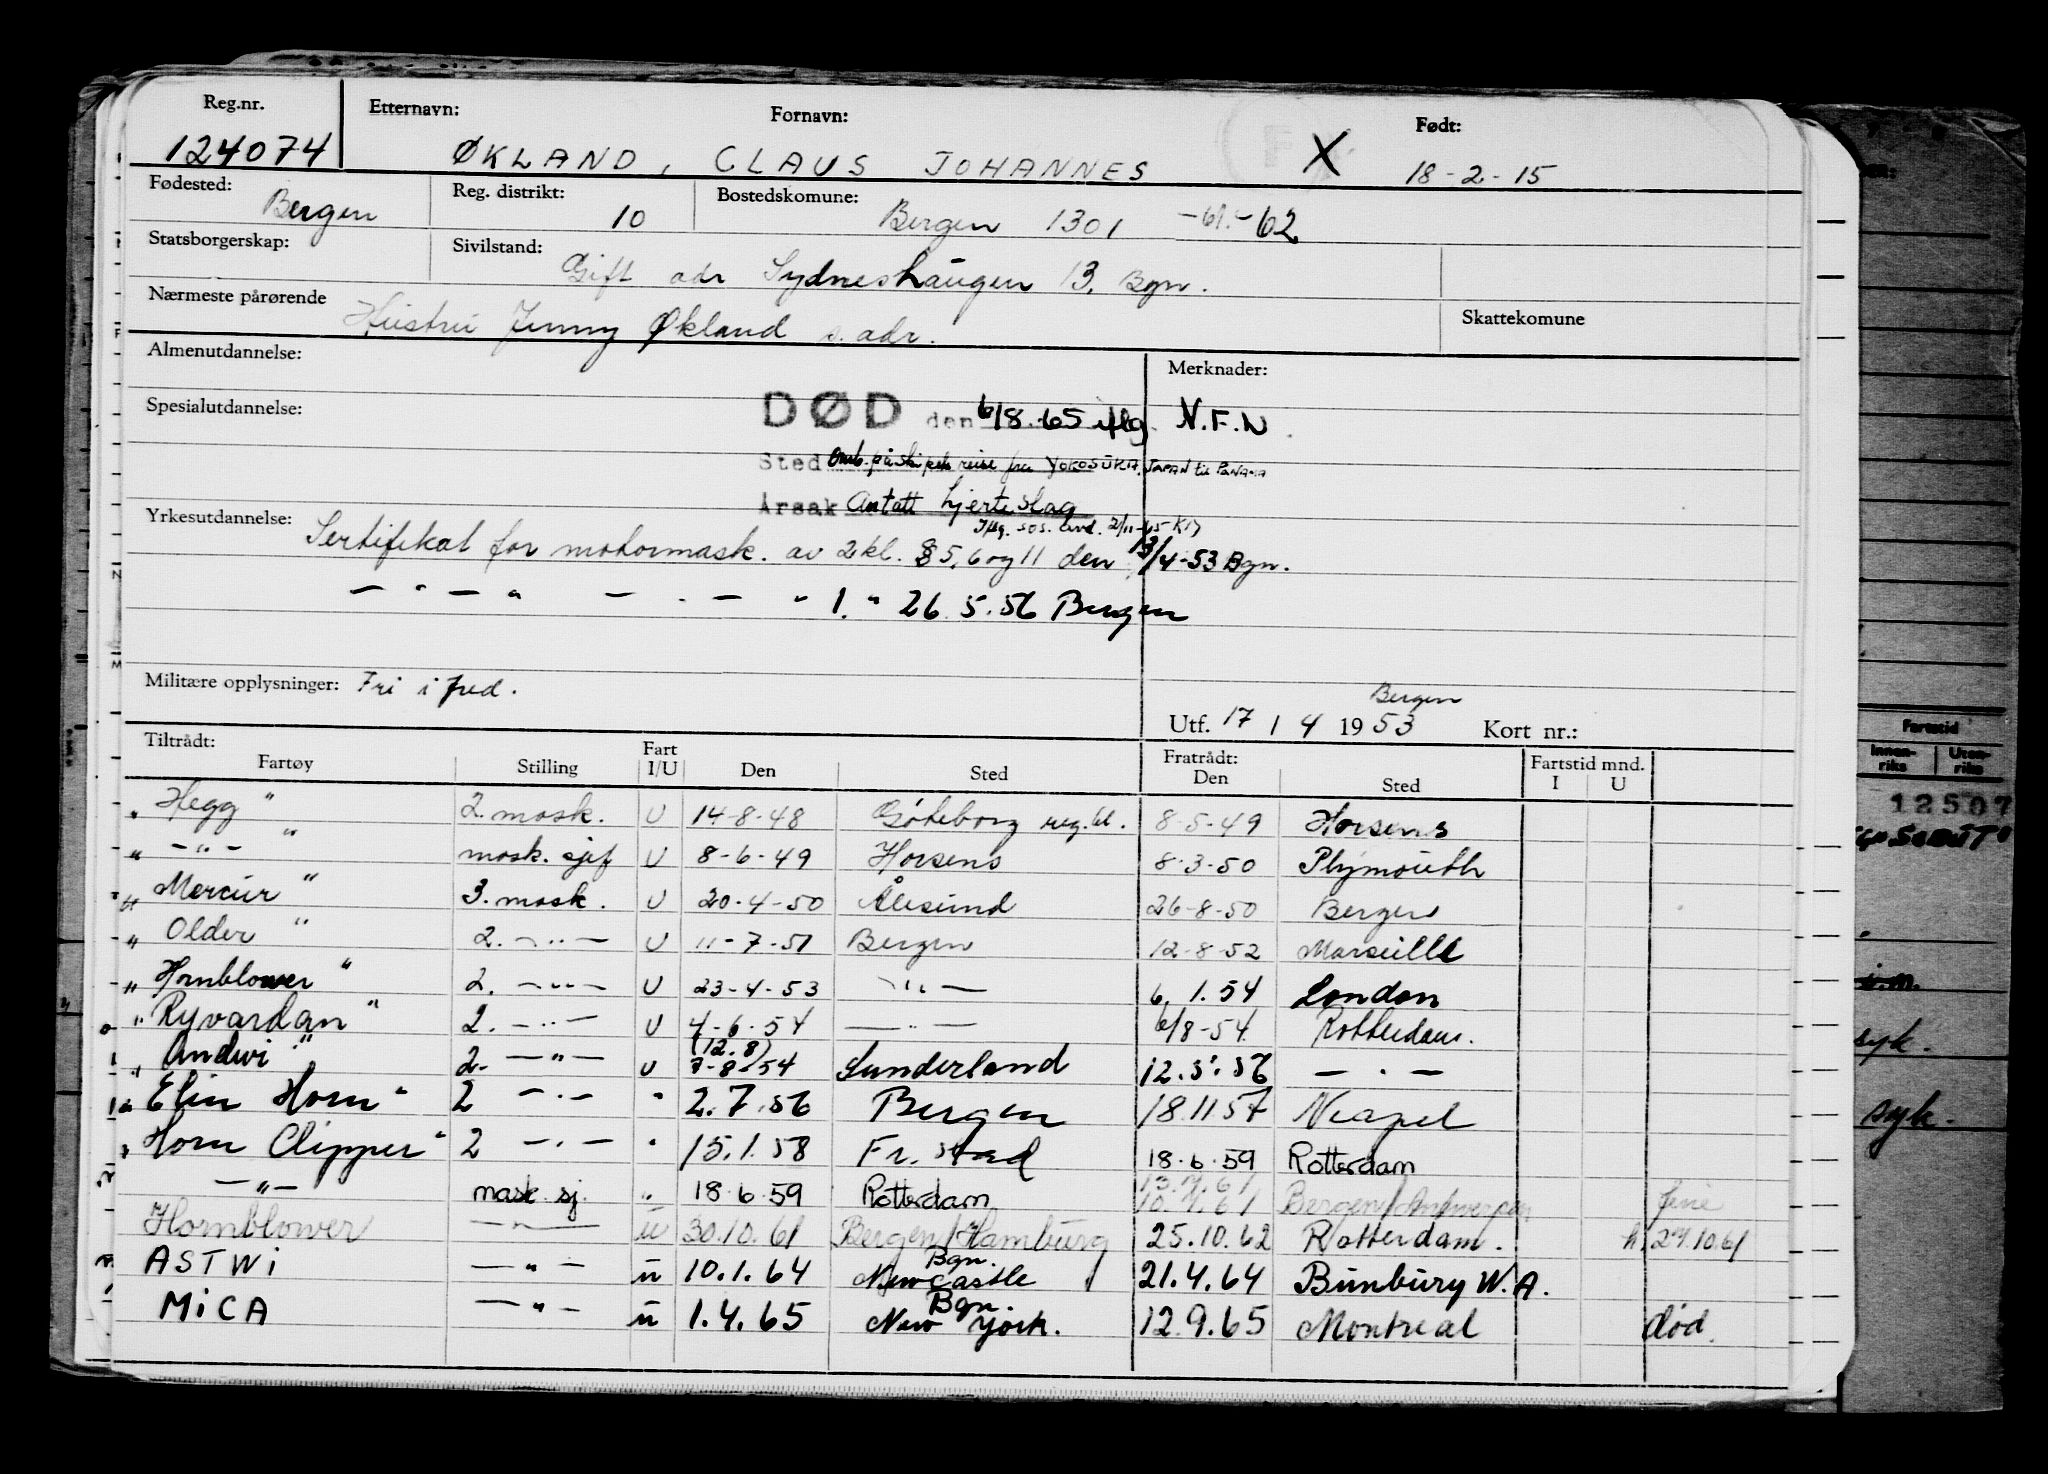 Reg.nr. Etternavn: Fornavn: Født:
124074 ØKLAND, CLAUS JOHANNES X 18-2-15
Fødested: Reg. distrikt: Bostedskomune:
Bergen 10 Bergen 1301 -61.-62
Statsborgerskap: Sivilstand:
Gift adr Sydneshaugen 13. Bgn.
Nærmeste pårørende Skattekomune
Hustru Jenny Økland s. adr.
Almenutdannelse: Merknader:
Spesialutdannelse: DØD den 6/8.65 iflg. N.F.N.
Sted Omb. på skipets reise fra YOKOSUKA, JAPAN til PANAMA
Årsak Antatt hjerteslag
Iflg. sos. avd. 2/11-65 KD
Yrkesutdannelse: Sertifikat for motormask. av 2 kl. § 5, 6 og 11 den 13/4-53 Bgn.
— " — " — . — " 1. " 26.5.56 Bergen
Militære opplysninger: Fri i fred.
Bergen
Utf. 17 / 4 1953 Kort nr.:
Tiltrådt: Fart Fratrådt: Fartstid mnd.
Fartøy Stilling I/U Den Sted Den Sted I U
" Hegg " 2. mask. U 14-8-48 Göteborg reg.bl. 8-5-49 Horsens
" — " — " mask. sjef U 8-6-49 Horsens 8-3-50 Plymouth
" Mercur " 3. mask. U 20-4-50 Ålesund 26-8-50 Bergen
" Older " 2. — " — U 11-7-51 Bergen 12-8-52 Marseille
" Hornblower " 2. — " — U 23-4-53 — " — 6.1.54 London
" Ryvardan " 2. — " — U 4-6-54 — " — 6/8-54 Rotterdam.
(12.8)
" Andwi " 2. — " — U 7-8-54 Sunderland 12.5.56 — " —
" Elin Horn " 2 — " — " 2.7.56 Bergen 18.11 57 Neapel
" Horn Clipper " 2 — " — " 15.1.58 Fr. stad 18.6.59 Rotterdam
13.7.61
— " — mask sj. " 18.6.59 Rotterdam 10.7.61 Bergen/Antwerpen ferie
Hornblower — " — ü 30.10.61 Bergen/Hamburg 25.10.62 Rotterdam. h. 27.10.61
Bgn.
ASTWi — " — ü 10.1.64 Newcastle 21.4.64 Bunbury W.A.
Bgn.
MiCA — " — ü 1.4.65 New York. 12.9.65 Montreal død.
Fartstid
Innen-riks Uten-riks
12507
syk.
syk.